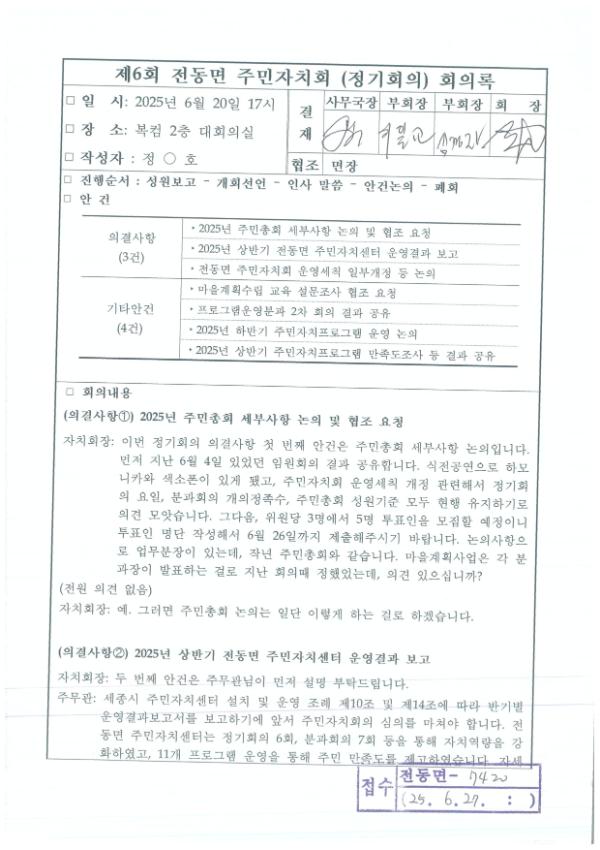 제6회 전동면 주민자치회 (정기회의) 회의록
□ 일 시: 2025년 6월 20일 17시
□ 장 소: 복컴 2층 대회의실
□ 작성자 : 정 ○ 호
결재
사무국장 부회장 부회장 회 장
협조 면장
□ 진행순서 : 성원보고 - 개회선언 - 인사 말씀 - 안건논의 - 폐회
□ 안 건
의결사항
(3건)
・2025년 주민총회 세부사항 논의 및 협조 요청
・2025년 상반기 전동면 주민자치센터 운영결과 보고
・전동면 주민자치회 운영세칙 일부개정 등 논의
기타안건
(4건)
・마을계획수립 교육 설문조사 협조 요청
・프로그램운영분과 2차 회의 결과 공유
・2025년 하반기 주민자치프로그램 운영 논의
・2025년 상반기 주민자치프로그램 만족도조사 등 결과 공유
□ 회의내용
(의결사항①) 2025년 주민총회 세부사항 논의 및 협조 요청
자치회장: 이번 정기회의 의결사항 첫 번째 안건은 주민총회 세부사항 논의입니다.
먼저 지난 6월 4일 있었던 임원회의 결과 공유합니다. 식전공연으로 하모
니카와 색소폰이 있게 됐고, 주민자치회 운영세칙 개정 관련해서 정기회
의 요일, 분과회의 개의정족수, 주민총회 성원기준 모두 현행 유지하기로
의견 모았습니다. 그다음, 위원당 3명에서 5명 투표인을 모집할 예정이니
투표인 명단 작성해서 6월 26일까지 제출해주시기 바랍니다. 논의사항으
로 업무분장이 있는데, 작년 주민총회와 같습니다. 마을계획사업은 각 분
과장이 발표하는 걸로 지난 회의때 정했었는데, 의견 있으십니까?
(전원 의견 없음)
자치회장: 예. 그러면 주민총회 논의는 일단 이렇게 하는 걸로 하겠습니다.
(의결사항②) 2025년 상반기 전동면 주민자치센터 운영결과 보고
자치회장: 두 번째 안건은 주무관님이 먼저 설명 부탁드립니다.
주무관: 세종시 주민자치센터 설치 및 운영 조례 제10조 및 제14조에 따라 반기별
운영결과보고서를 보고하기에 앞서 주민자치회의 심의를 마쳐야 합니다. 전
동면 주민자치센터는 정기회의 6회, 분과회의 7회 등을 통해 자치역량을 강
화하였고, 11개 프로그램 운영을 통해 주민 만족도를 제고하였습니다. 자세
접수 전동면- 7420
(25. 6. 27. : )